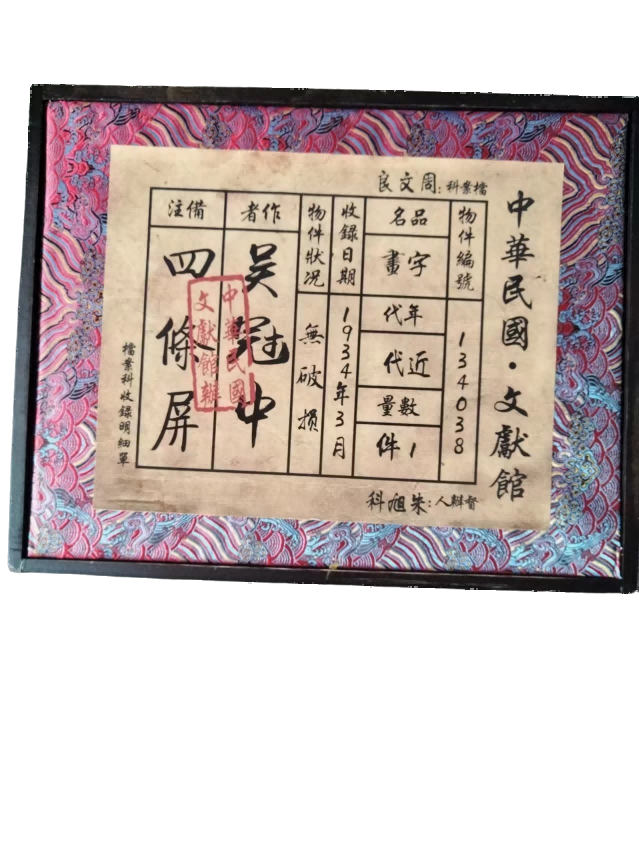 中華民國·文獻館
檔案科:周文良
物件編號
134038
品名
字畫
年代
近代
數量
1件
收錄日期
1934年3月
物件狀况
無破損
作者
吴冠中
備注
四條屏
中華民國
文獻館辦
檔案科收錄明細單
督辦人:朱旭科